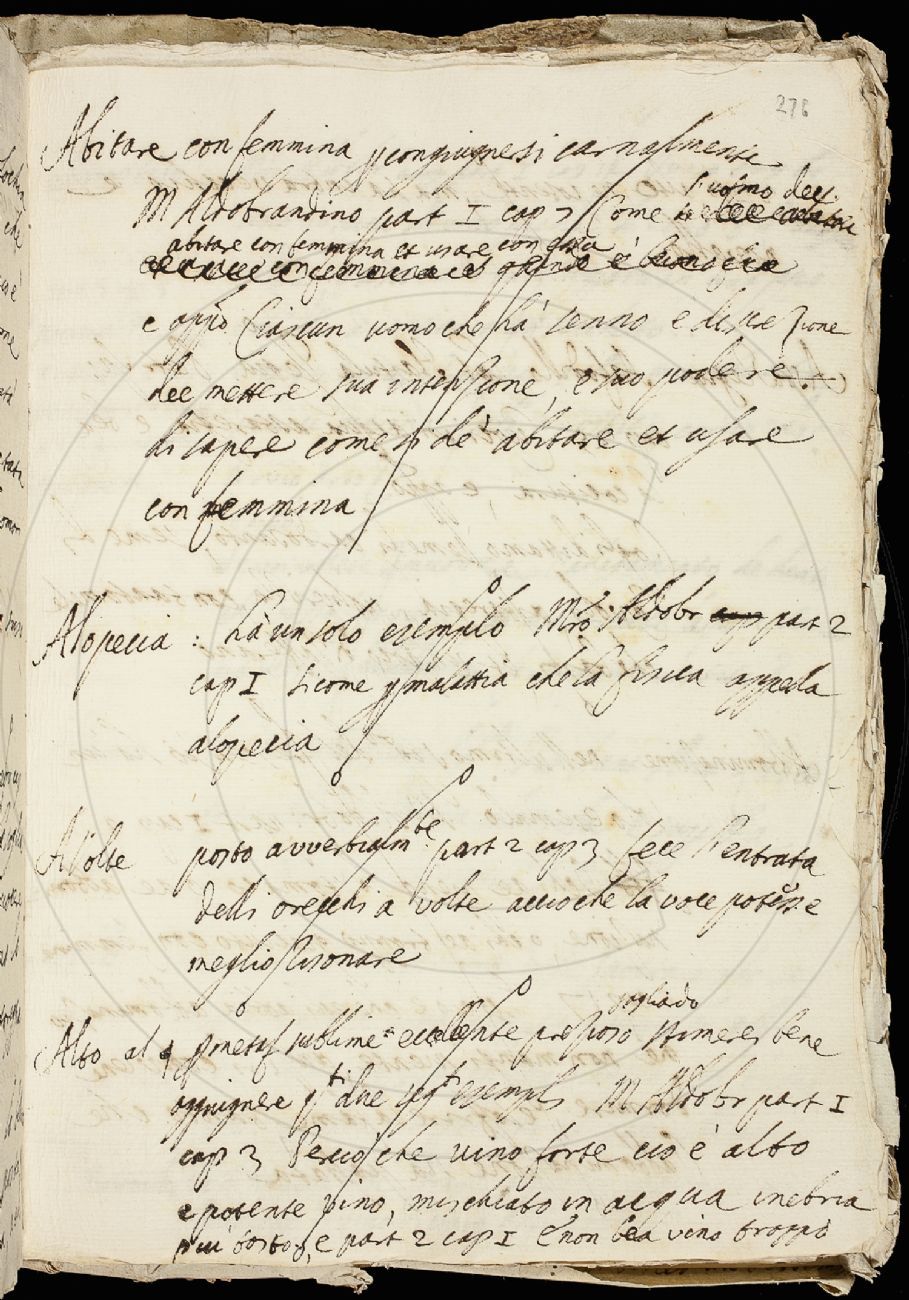 276
Abitare con femmina p congiugnersi carnalmente
M Aldobrandino part I cap 7 Come l'uomo dee
abitare con femmina et usare con essa
e appo Ciascun uomo che hà senno e discrezione
dee mettere sua intenzione, e suo podere
di sapere come si de' abitare et usare
con femmina
Alopecia : hà un solo esemplo Mro Aldobr part 2
cap I sicome p malattia che la fisica appella
alopecia
A Volte posto avverbialmte part 2 cap 3 fece l'entrata
delli orecchi a volte accioche la voce potesse
meglio risonare
Alto al p metaf sublime eccellente prezioso stimerei bene
aggiugnere qti due segti esempli M Aldobr part I
cap 3 Percioche vino forte cio è alto
e potente vino, mischiato in acqua inebria
piu tosto, e part 2 cap I E non bea vino troppo